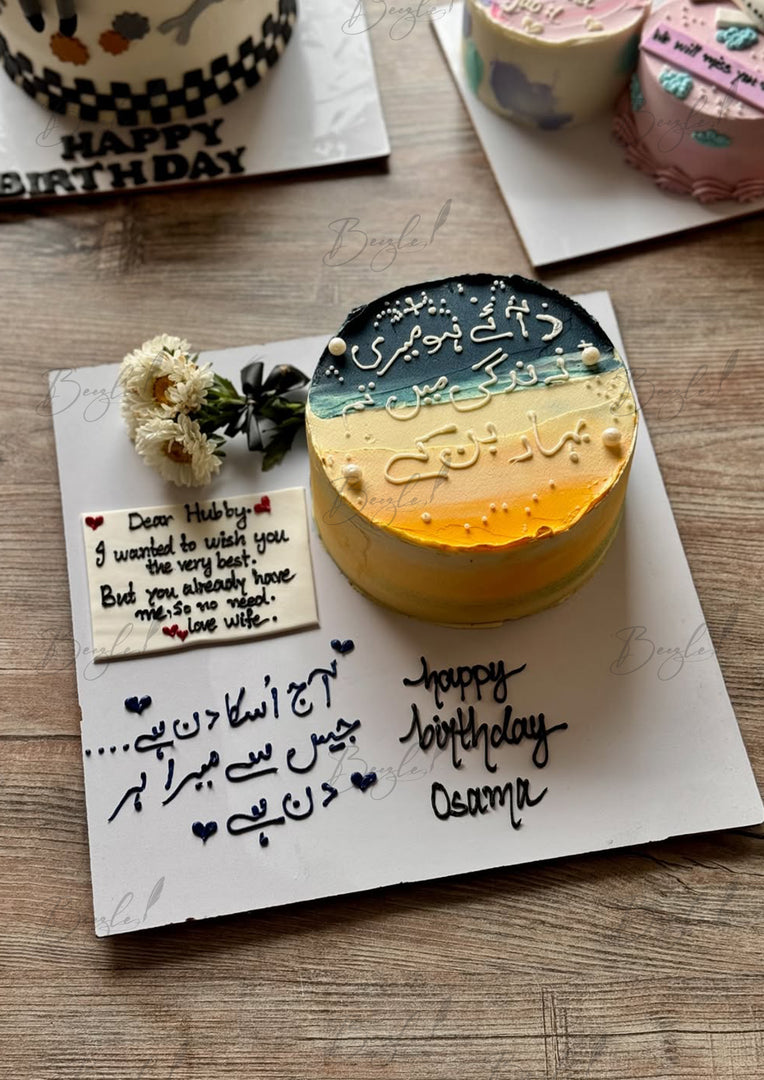 HAPPY
BIRTHDAY
We will miss you
آئے ہو میری
زندگی میں تم
بہار بن کے
Dear Hubby.
I wanted to wish you
the very best.
But you already have
me, so no need.
love wife.
آج اُسکا دن ہے....
جیس سے میرا ہر
دن ہے
happy
birthday
Osama
Beezle!